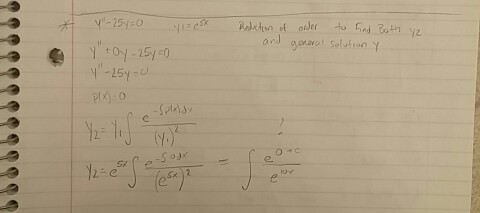 * y'' - 25y = 0   y1 = e^5x   Reduction of order to find Both y2
and general solution y
y'' + 0y - 25y = 0
y'' - 25y = 0
p(x) = 0
y2 = y1 ∫ e^-∫p(x)dx / (y1)^2   ?
y2 = e^5x ∫ e^-∫0dx / (e^5x)^2 = ∫ e^0+c / e^10x